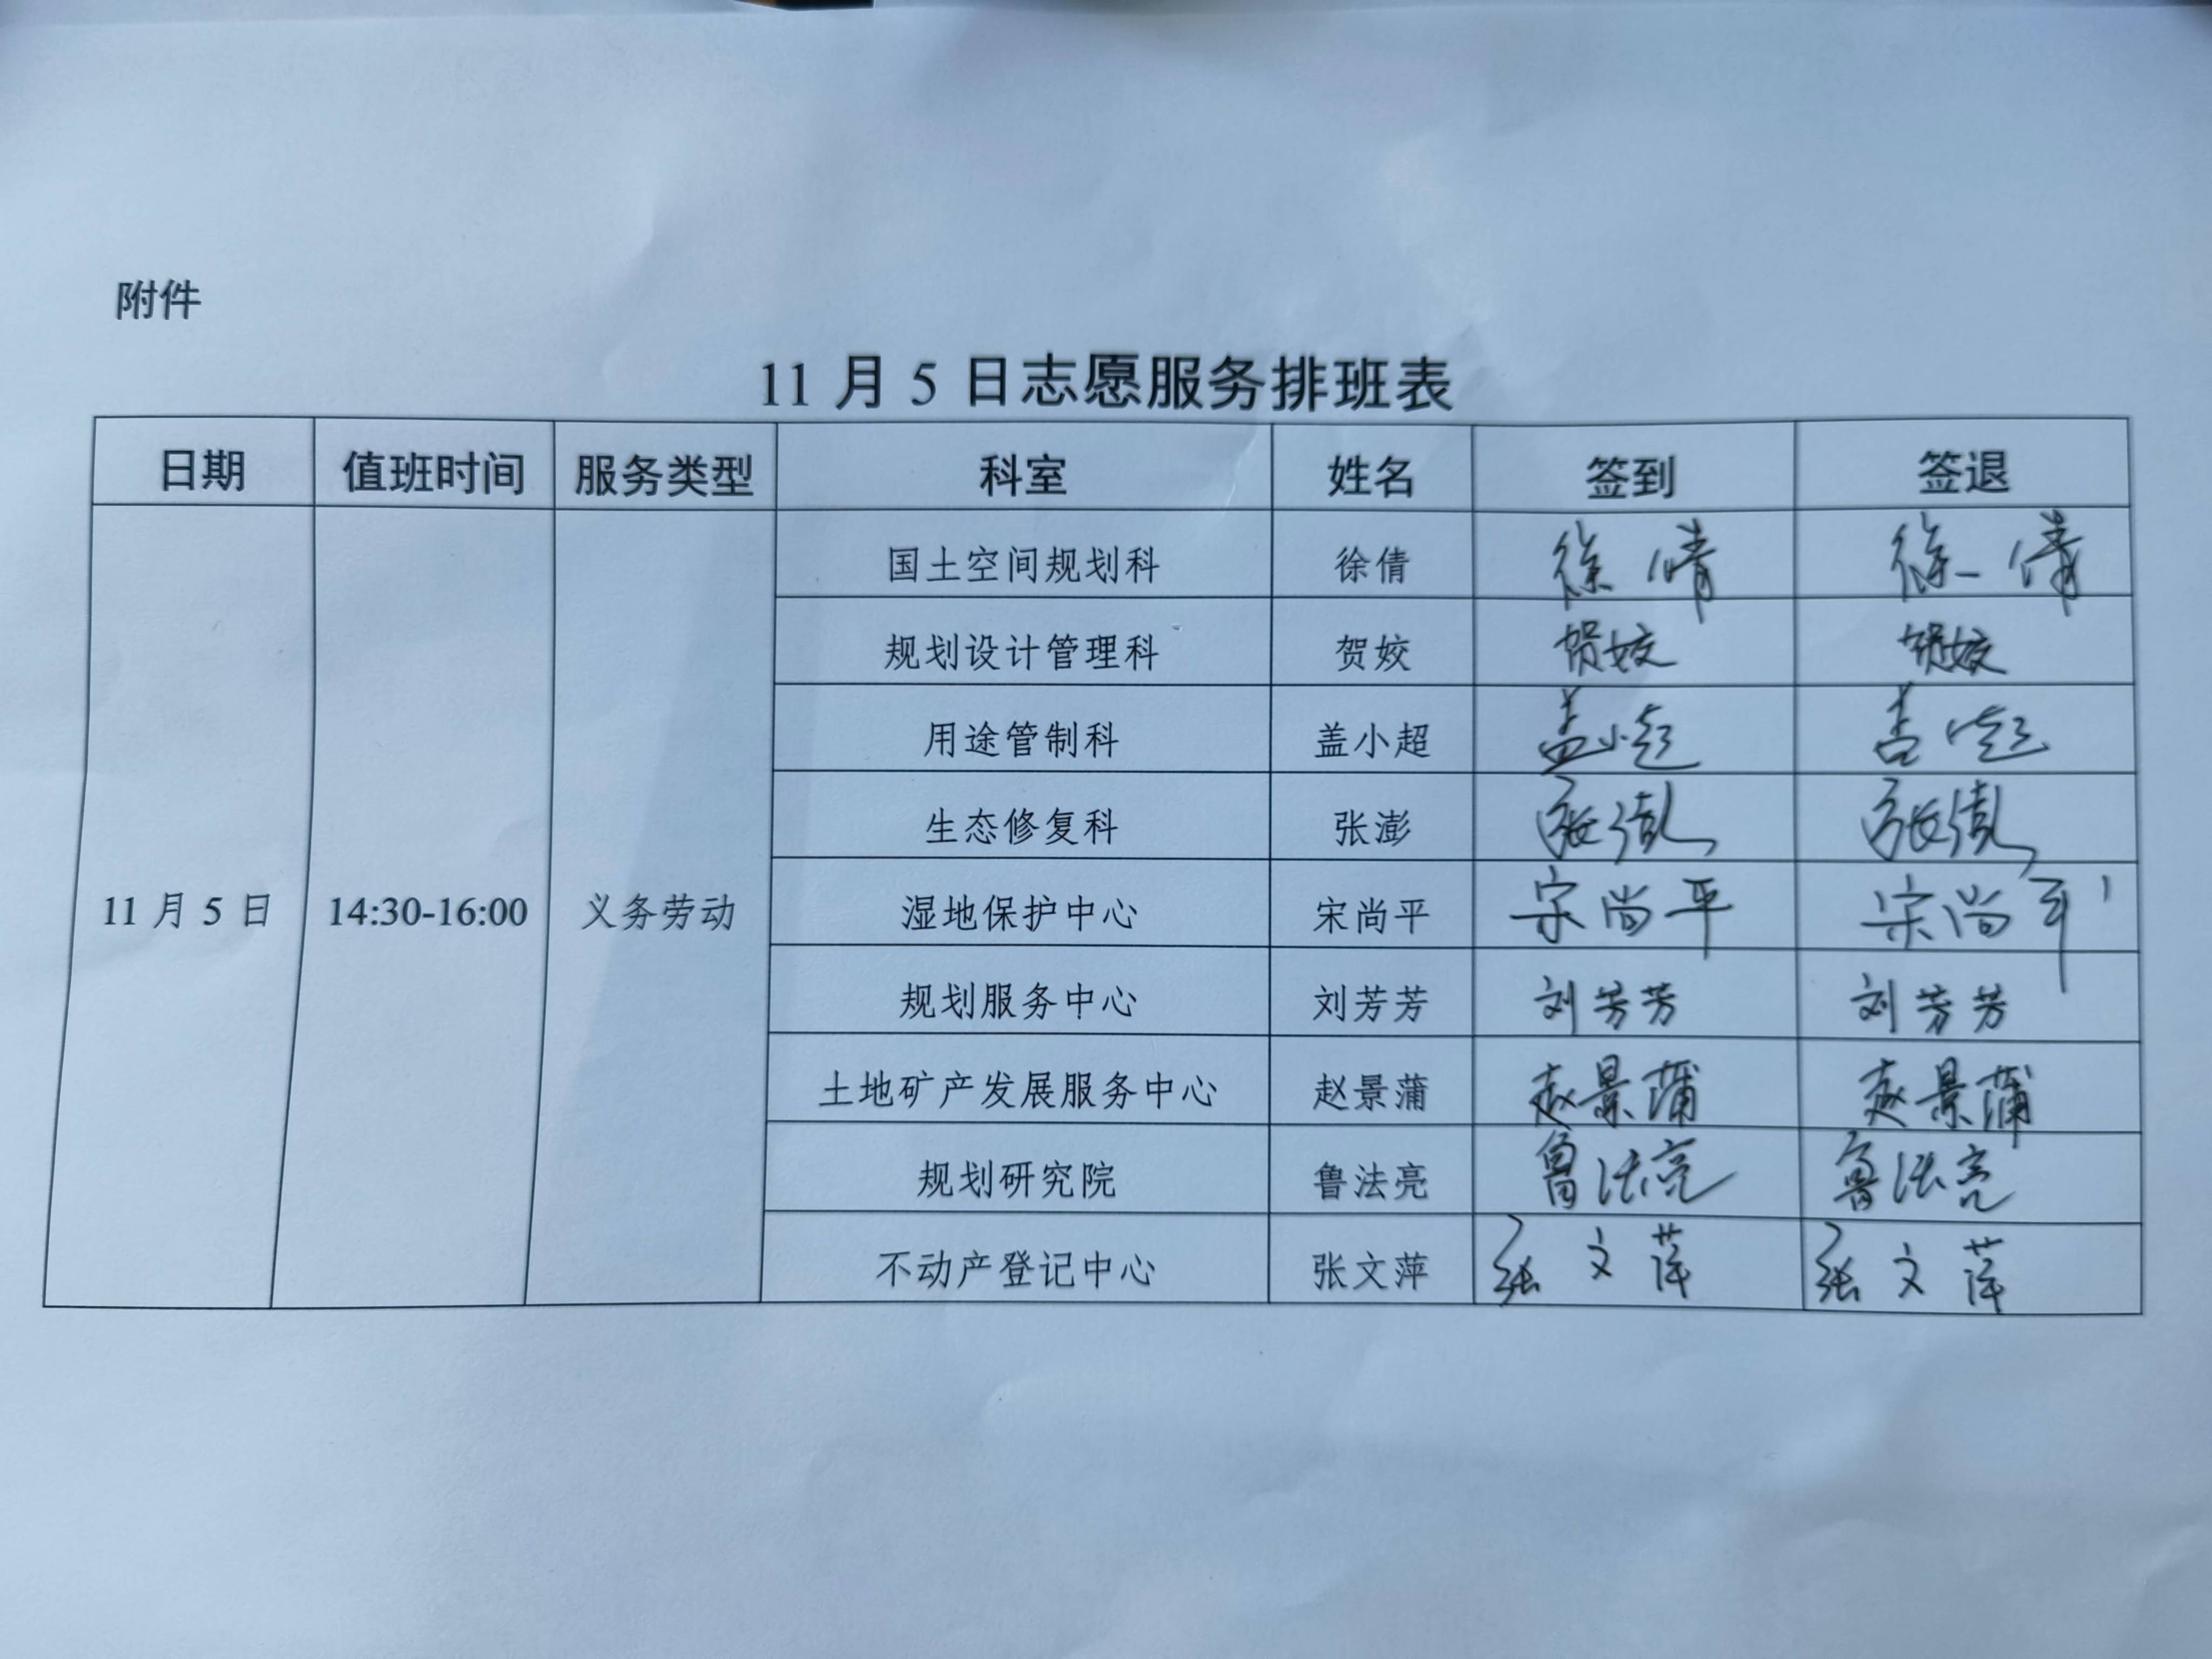 附件
11月5日志愿服务排班表
日期 值班时间 服务类型 科室 姓名 签到 签退
11月5日 14:30-16:00 义务劳动
国土空间规划科 徐倩 徐倩 徐倩
规划设计管理科 贺姣 贺姣 贺姣
用途管制科 盖小超 盖小超 盖小超
生态修复科 张澎 张澎 张澎
湿地保护中心 宋尚平 宋尚平 宋尚平
规划服务中心 刘芳芳 刘芳芳 刘芳芳
土地矿产发展服务中心 赵景蒲 赵景蒲 赵景蒲
规划研究院 鲁法亮 鲁法亮 鲁法亮
不动产登记中心 张文萍 张文萍 张文萍